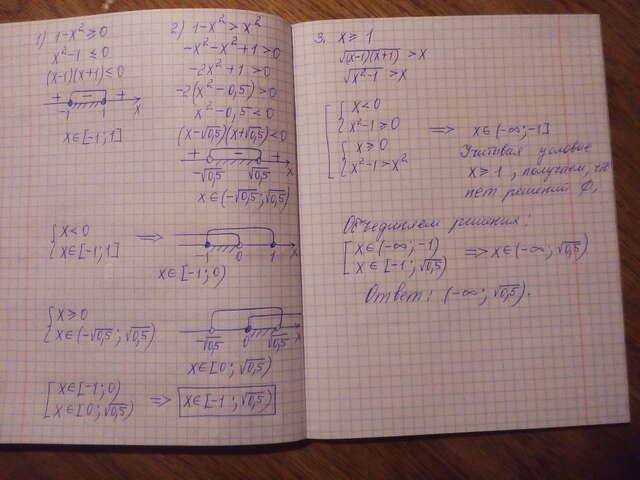 1) 1-x²≥0
x²-1≤0
(x-1)(x+1)≤0
+ - +
-1 1 x
x∈[-1;1]
2) 1-x²>x²
-x²-x²+1>0
-2x²+1>0
-2(x²-0,5)>0
x²-0,5<0
(x-√0,5)(x+√0,5)<0
+ - +
-√0,5 √0,5 x
x∈(-√0,5;√0,5)
{x<0
{x∈[-1;1] => -1 0 1 x
x∈[-1;0)
{x≥0
{x∈(-√0,5;√0,5) -√0,5 0 √0,5 x
x∈[0;√0,5)
[x∈[-1;0)
[x∈[0;√0,5) => x∈[-1;√0,5)
3. x≥1
√(x-1)(x+1) >x
√x²-1 >x
[{x<0
{x²-1≥0 => x∈(-∞;-1]
{x≥0
{x²-1>x²
Учитывая условие
x≥1, получаем, что
нет решений ∅,
Объединяем решения:
[x∈(-∞;-1)
[x∈[-1;√0,5) => x∈(-∞;√0,5)
Ответ: (-∞;√0,5).